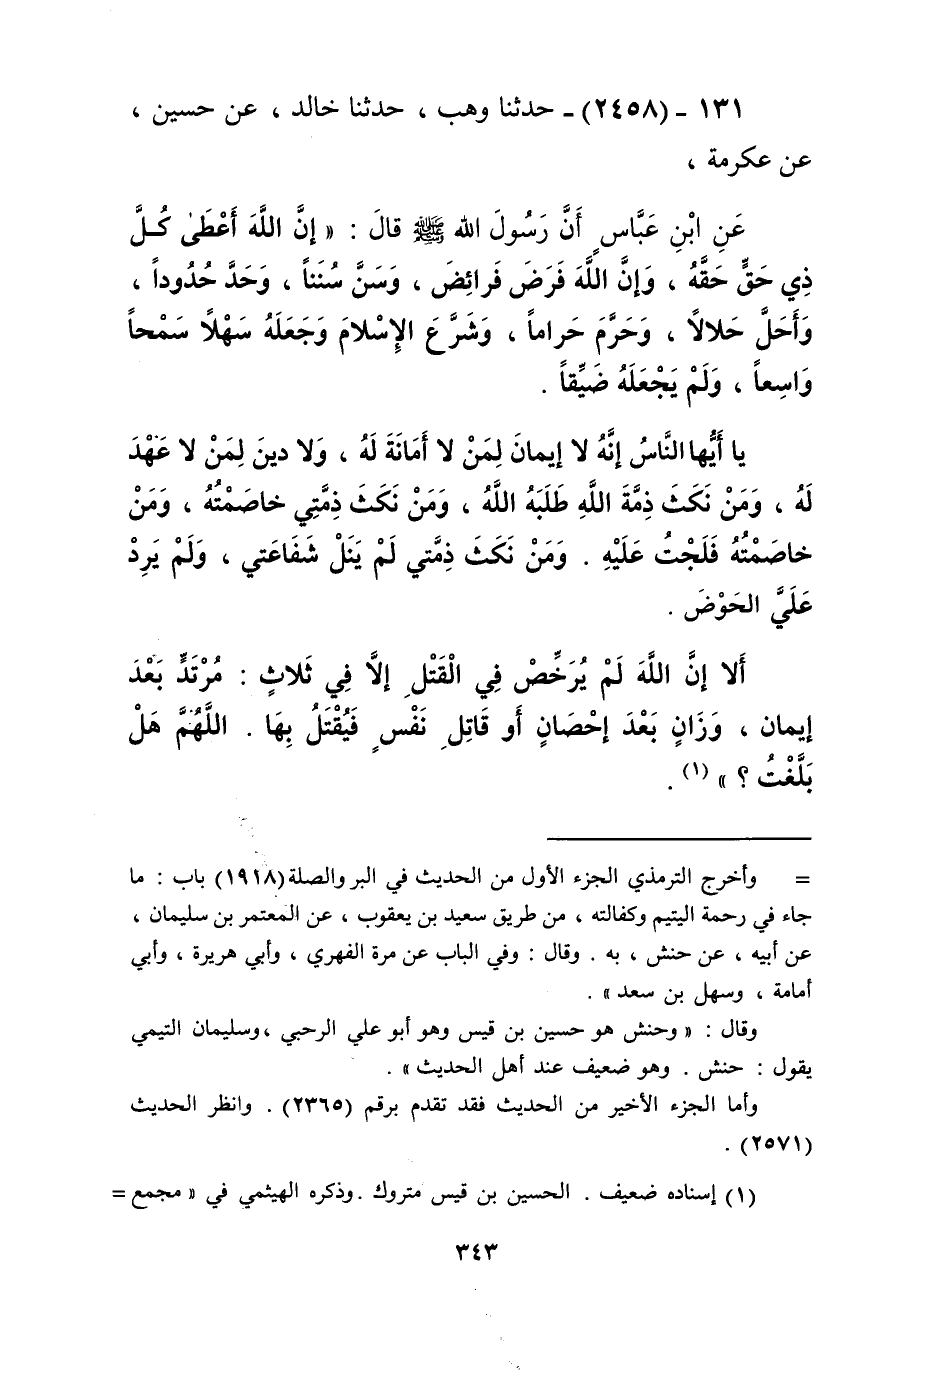 ١٣١ - (٢٤٥٨) - حدثنا وهب ، حدثنا خالد ، عن حسين ،
عن عكرمة ،
عَنِ ابْنِ عَبَّاسٍ أَنَّ رَسُولَ الله ﷺ قالَ : « إنَّ اللَّهَ أَعْطَىٰ كُلَّ
ذِي حَقٍّ حَقَّهُ ، وَإنَّ اللَّهَ فَرَضَ فَرائِضَ ، وَسَنَّ سُنَناً ، وَحَدَّ حُدُوداً ،
وَأَحَلَّ حَلالاً ، وَحَرَّمَ حَراماً ، وَشَرَّعَ الإِسْلامَ وَجَعَلَهُ سَهْلاً سَمْحاً
وَاسِعاً ، وَلَمْ يَجْعَلَهُ ضَيِّقاً .
يا أَيُّها النَّاسُ إنَّهُ لا إيمانَ لِمَنْ لا أَمَانَةَ لَهُ ، وَلا دينَ لِمَنْ لا عَهْدَ
لَهُ ، وَمَنْ نَكَثَ ذِمَّةَ اللَّهِ طَلَبَهُ اللَّهُ ، وَمَنْ نَكَثَ ذِمَّتِي خاصَمْتُهُ ، وَمَنْ
خاصَمْتُهُ فَلَجْتُ عَلَيْهِ . وَمَنْ نَكَثَ ذِمَّتي لَمْ يَنَلْ شَفَاعَتي ، وَلَمْ يَرِدْ
عَلَيَّ الحَوْضَ .
أَلا إنَّ اللَّهَ لَمْ يُرَخِّصْ فِي الْقَتْلِ إلاَّ فِي ثَلاثٍ : مُرْتَدٍّ بَعْدَ
إيمان ، وَزَانٍ بَعْدَ إحْصَانٍ أَو قَاتِلِ نَفْسٍ فَيُقْتَلُ بِهَا . اللَّهُمَّ هَلْ
بَلَّغْتُ ؟ » (١) .
= وأخرج الترمذي الجزء الأول من الحديث في البر والصلة (١٩١٨) باب : ما
جاء في رحمة اليتيم وكفالته ، من طريق سعيد بن يعقوب ، عن المعتمر بن سليمان ،
عن أبيه ، عن حنش ، به . وقال : وفي الباب عن مرة الفهري ، وأبي هريرة ، وأبي
أمامة ، وسهل بن سعد » .
وقال : « وحنش هو حسين بن قيس وهو أبو علي الرحبي ، وسليمان التيمي
يقول : حنش . وهو ضعيف عند أهل الحديث » .
وأما الجزء الأخير من الحديث فقد تقدم برقم (٢٣٦٥) . وانظر الحديث
(٢٥٧١) .
(١) إسناده ضعيف . الحسين بن قيس متروك . وذكره الهيثمي في « مجمع =
٣٤٣